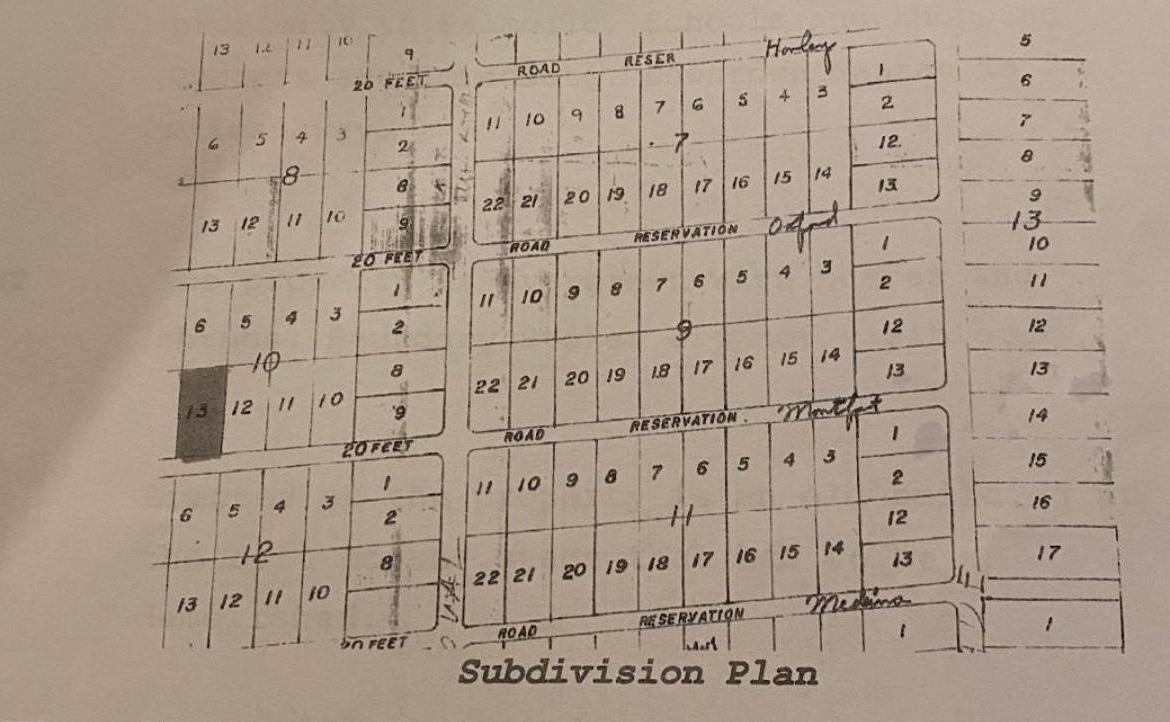 13 12 11 10 9
ROAD RESER Henley
20 FEET
6 5 4 3 1
2
8
13 12 11 10 8
9
20 FEET
11 10 9 8 7 6 5 4 3 1
2
7
22 21 20 19 18 17 16 15 14 12
13
ROAD RESERVATION Oxford
6 5 4 3 1
2
10
13 12 11 10 8
9
20 FEET
11 10 9 8 7 6 5 4 3 1
2
9
22 21 20 19 18 17 16 15 14 12
13
ROAD RESERVATION
6 5 4 3 1
2
12
13 12 11 10 8
20 FEET
11 10 9 8 7 6 5 4 3 1
2
11
22 21 20 19 18 17 16 15 14 12
13
ROAD RESERVATION
1
5
6
7
8
9
13
10
11
12
13
14
15
16
17
1
Subdivision Plan